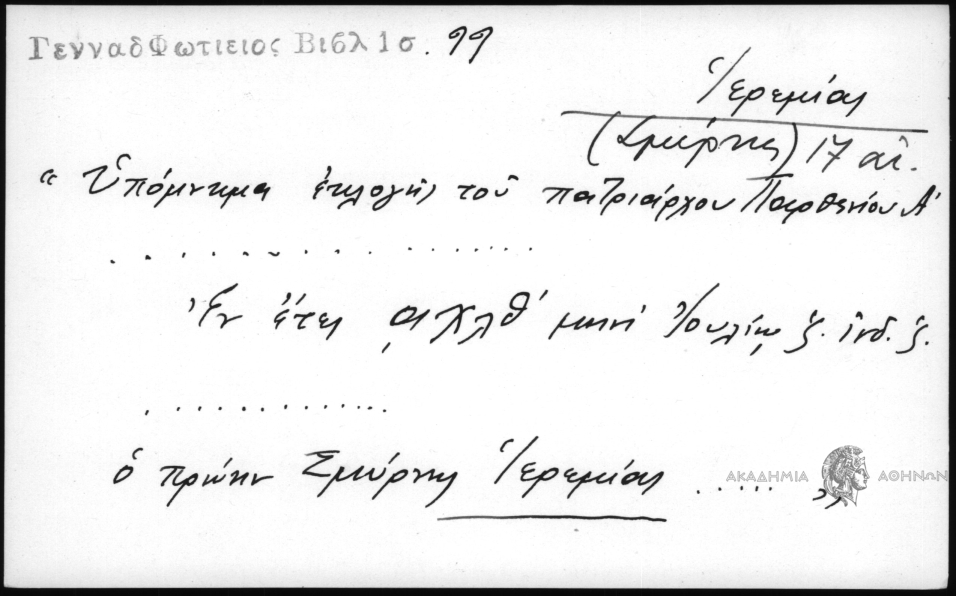 ΓενναδΦωτιειος Βιβλ 1σ. 99
Ἱερεμίας
(Σμύρνης) 17 αἰ.
“ Ὑπόμνημα ἐκλογῆς τοῦ πατριάρχου Παρθενίου Α'
. . . . . . . . . . . . . . . .
Ἐν ἔτει ͵αχλθ' μηνὶ Ἰουλίῳ ἰνδ. ζ.
. . . . . . . . . . . . . .
ὁ πρώην Σμύρνης Ἱερεμίας . . . . . ”
ΑΚΑΔΗΜΙΑ ΑΘΗΝΩΝ